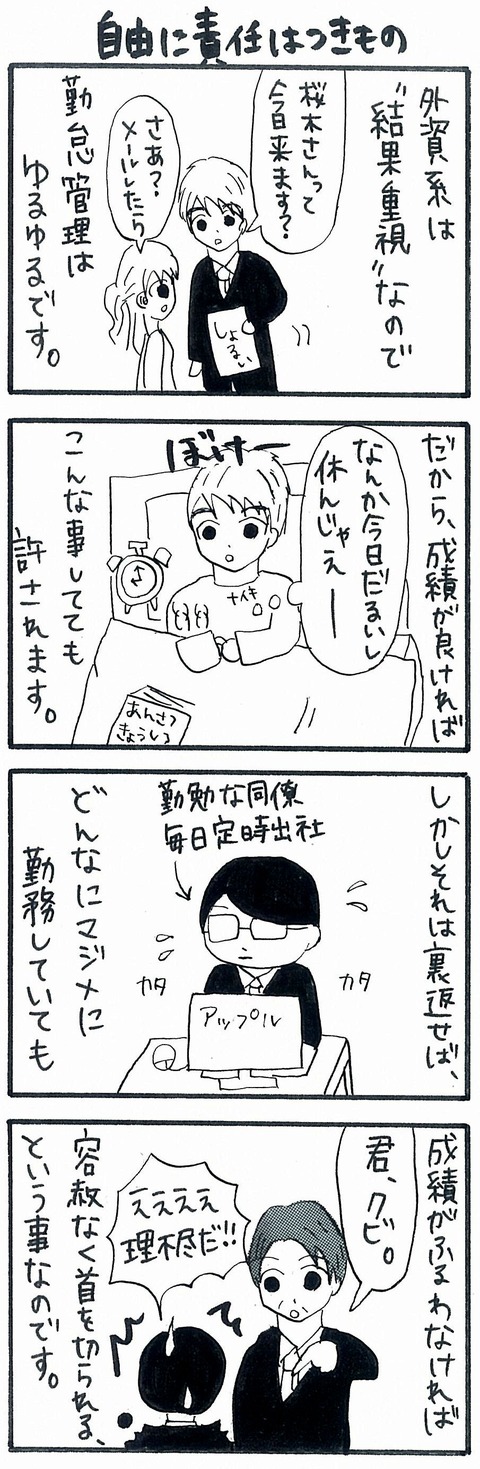 自由に責任はつきもの
外資系は
"結果重視"なので
桜木さんって
今日来ます?
さあ?
メールしたら
しょるい
勤怠管理は
ゆるゆるです。
だから、成績が良ければ
なんか今日だるいし
休んじゃえー
ぼけー
ナイキ
あんさつ
きょうしつ
こんな事してても
許されます。
しかしそれは裏返せば、
勤勉な同僚
毎日定時出社
カタ
カタ
アップル
どんなにマジメに
勤務していても
成績がふるわなければ
君、クビ。
ええええ
理不尽だ!!
容赦なく首を切られる、
という事なのです。